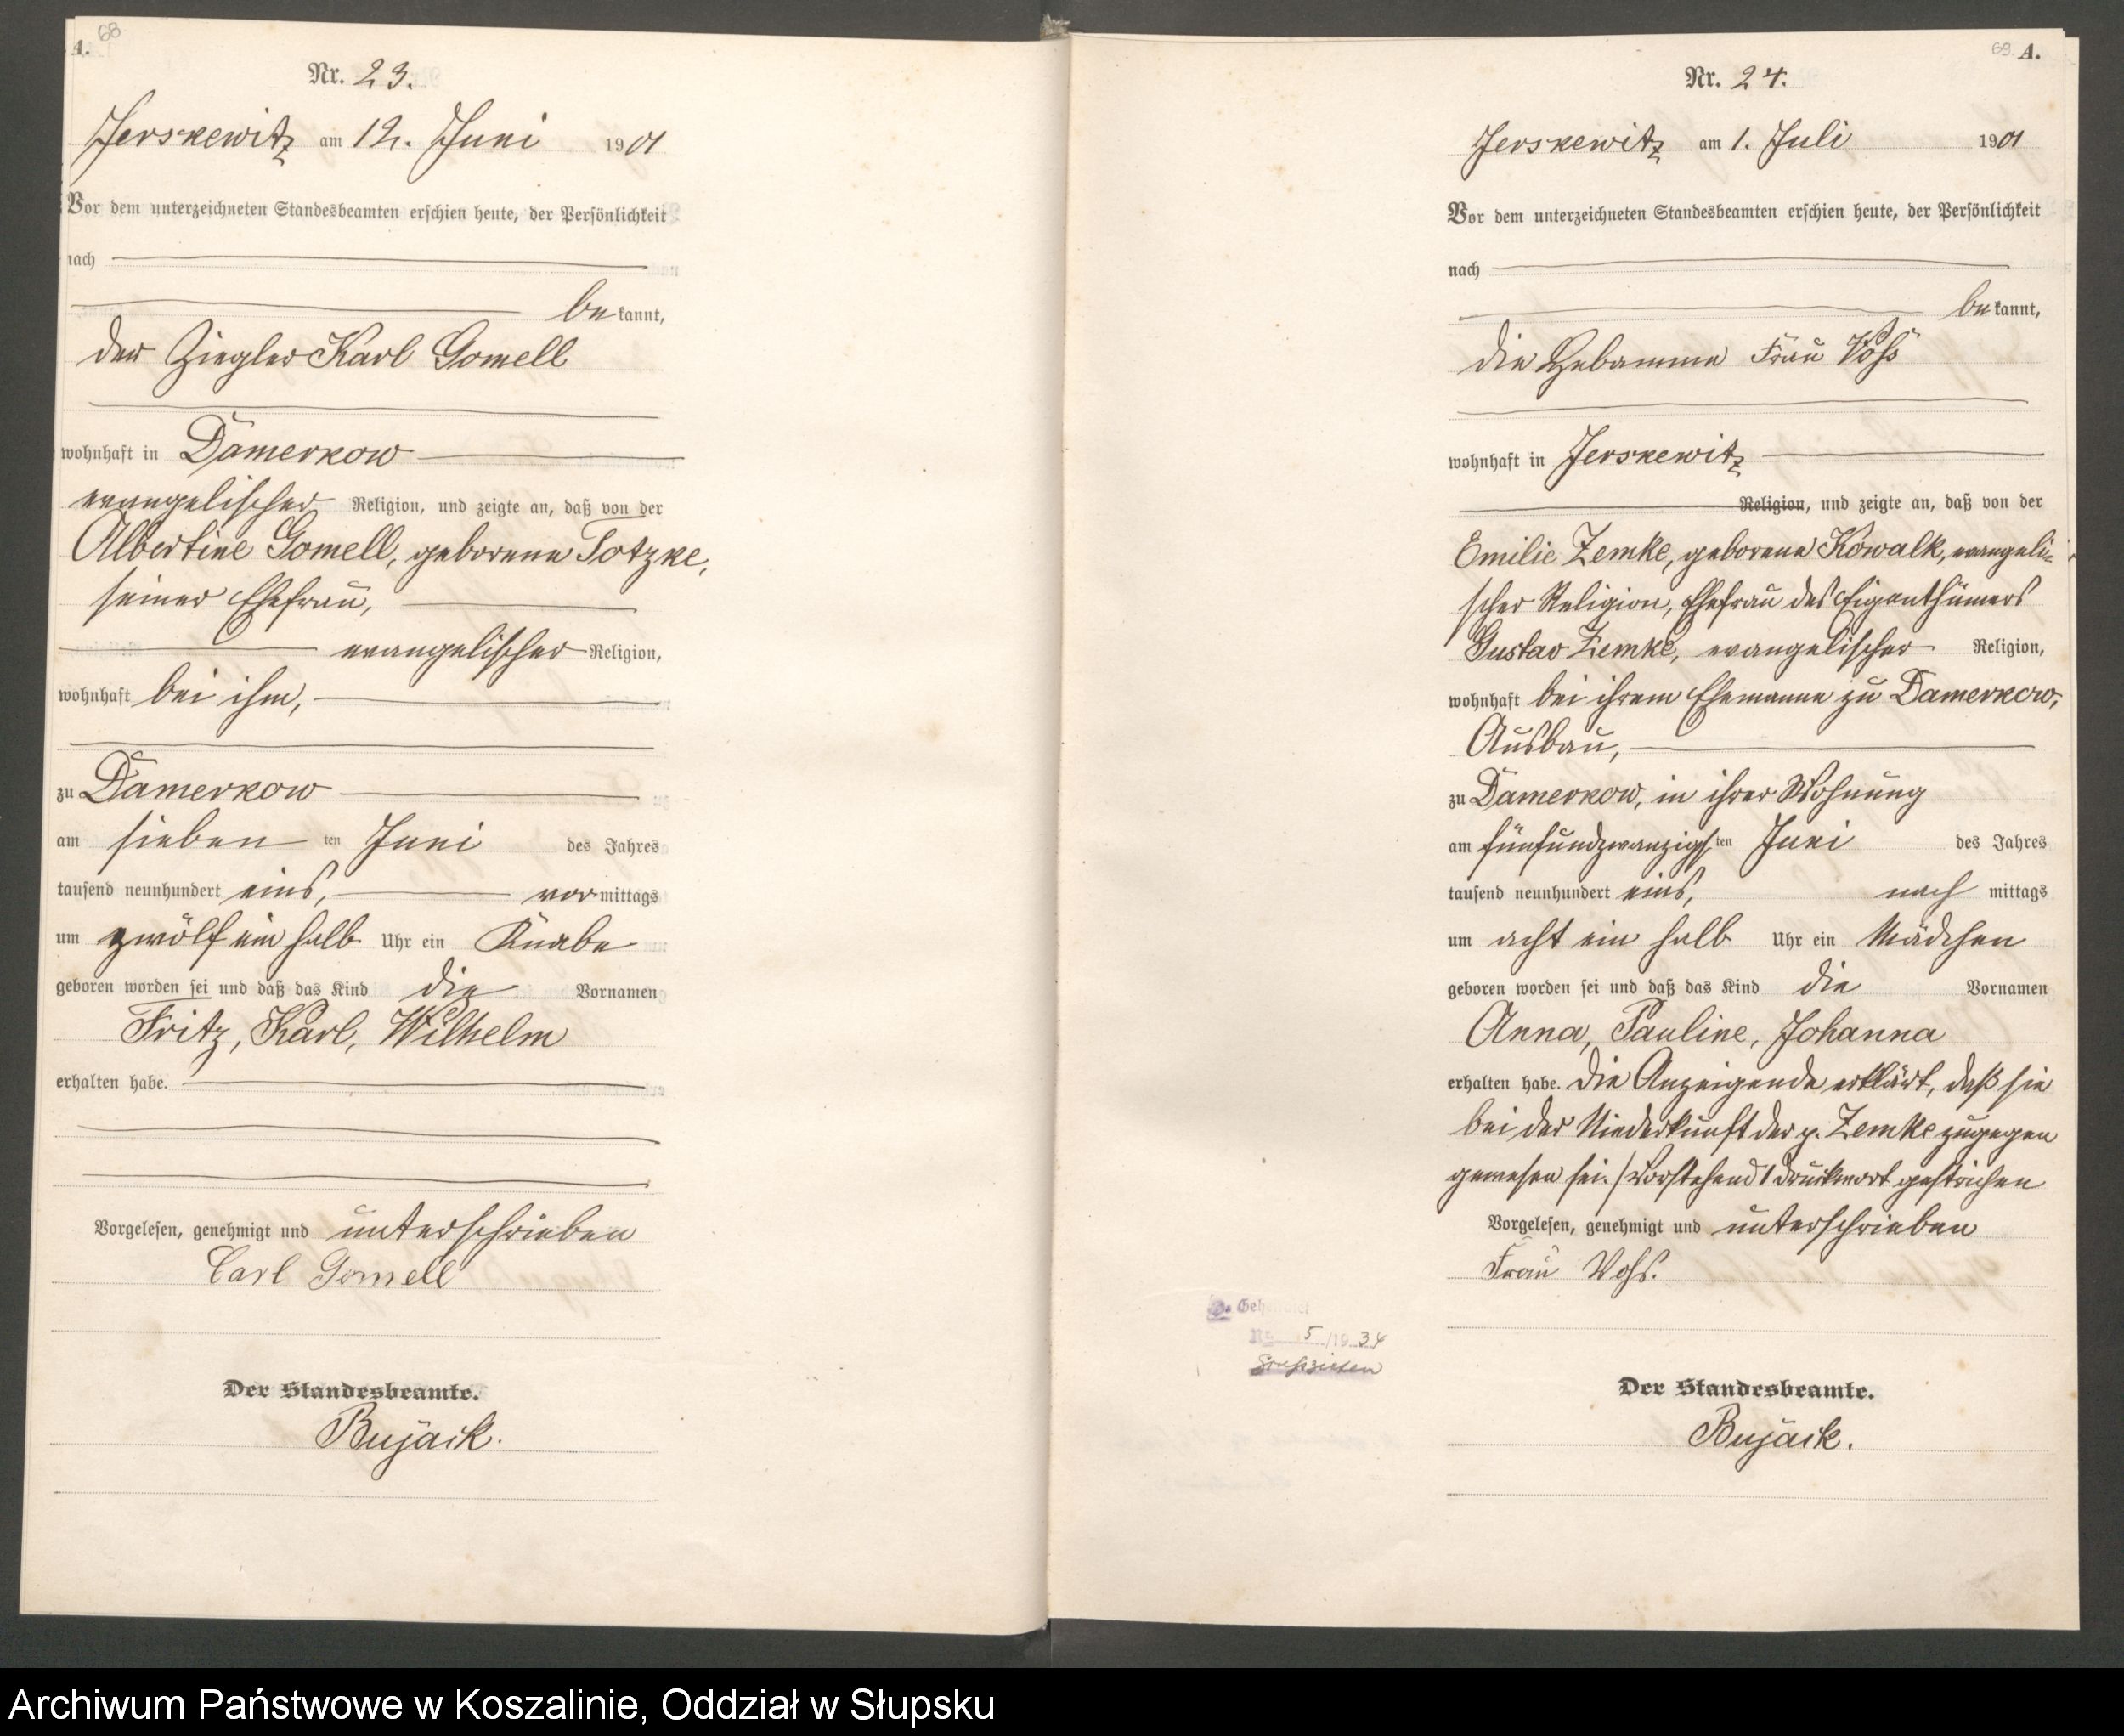 A. 68
Nr. 23.
Jerskewitz am 12. Juni 1901
Vor dem unterzeichneten Standesbeamten erschien heute, der Persönlichkeit
nach
bekannt,
der Ziegler Karl Gomell
wohnhaft in Damerkow
evangelischer Religion, und zeigte an, daß von der
Albertine Gomell, geborene Totzke,
seiner Ehefrau,
evangelischer Religion,
wohnhaft bei ihm,
zu Damerkow
am siebenten Juni des Jahres
tausend neunhundert eins, vormittags
um zwölf ein halb Uhr ein Knabe
geboren worden sei und daß das Kind die Vornamen
Fritz, Karl, Wilhelm
erhalten habe.
Vorgelesen, genehmigt und unterschrieben
Carl Gomell
Der Standesbeamte.
Bujack.
69 A.
Nr. 24.
Jerskewitz am 1. Juli 1901
Vor dem unterzeichneten Standesbeamten erschien heute, der Persönlichkeit
nach
bekannt,
die Hebamme Frau Voß
wohnhaft in Jerskewitz
Religion, und zeigte an, daß von der
Emilie Zemke, geborene Kowalk, evangeli=
scher Religion, Ehefrau des Eigenthümers
Gustav Zemke, evangelischer Religion,
wohnhaft bei ihrem Ehemanne zu Damerkow,
Ausbau,
zu Damerkow, in ihrer Wohnung
am fünfundzwanzigsten Juni des Jahres
tausend neunhundert eins, nach mittags
um acht ein halb Uhr ein Mädchen
geboren worden sei und daß das Kind die Vornamen
Anna, Pauline, Johanna
erhalten habe. Die Anzeigende erklärt, daß sie
bei der Niederkunft der p. Zemke zugegen
gewesen sei. / Vorstehend 1 Druckwort gestrichen
Vorgelesen, genehmigt und unterschrieben
Frau Voß.
Nr. 5/1934
Der Standesbeamte.
Bujack.
Archiwum Państwowe w Koszalinie, Oddział w Słupsku